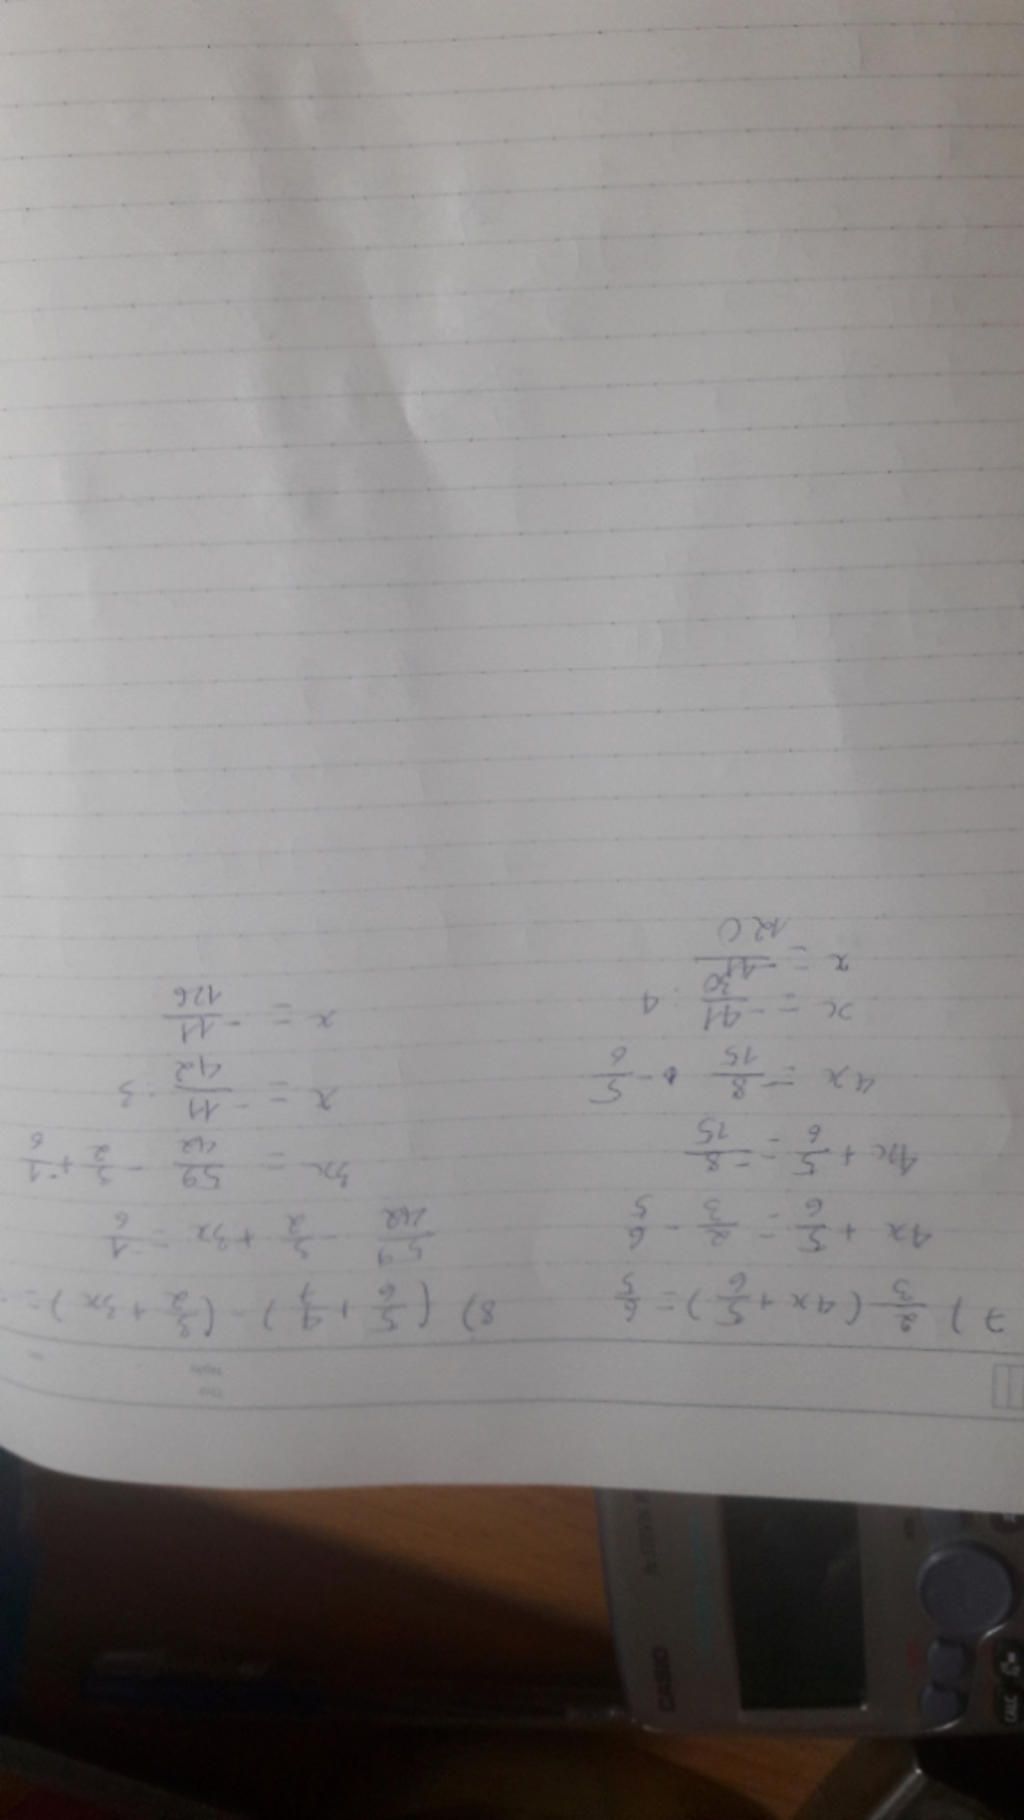 7) 2/3 (4x + 5/6) = 6/5
4x + 5/6 = 2/3 - 6/5
4x + 5/6 = -8/15
4x = -8/15 - 5/6
x = -41/30 : 4
x = -41/120
8) (5/6 + 4/7) - (3/2 + 3x) =
59/42 - 3/2 + 3x = -1/6
3x = 59/42 - 3/2 + -1/6
x = -11/42 : 3
x = -11/126
CASIO
CALC